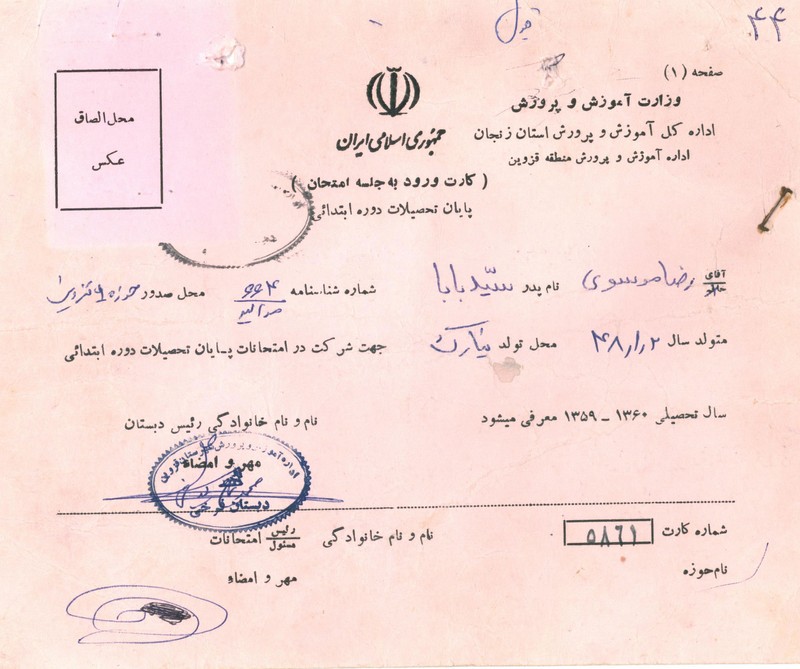 ۴۴
قبول
صفحه (۱)
وزارت آموزش و پرورش
اداره کل آموزش و پرورش استان زنجان
اداره آموزش و پرورش منطقه قزوین
جمهوری اسلامی ایران
محل الصاق
عکس
( کارت ورود به جلسه امتحان )
پایان تحصیلات دوره ابتدائی
آقای رضا موسوی نام پدر سیّد بابا شماره شناسنامه ۶۶۴ محل صدور حوزه ۹ قزوین
متولد سال ۲ر۱ر۴۸ محل تولد نیارک جهت شرکت در امتحانات پایان تحصیلات دوره ابتدائی
سال تحصیلی ۱۳۶۰ – ۱۳۵۹ معرفی میشود
نام و نام خانوادگی رئیس دبستان
مهر و امضاء
اداره آموزش و پرورش شهرستان قزوین
دبستان فرخی
شماره کارت ۵۸۶۱ نام و نام خانوادگی رئیس مسئول امتحانات
نام حوزه مهر و امضاء